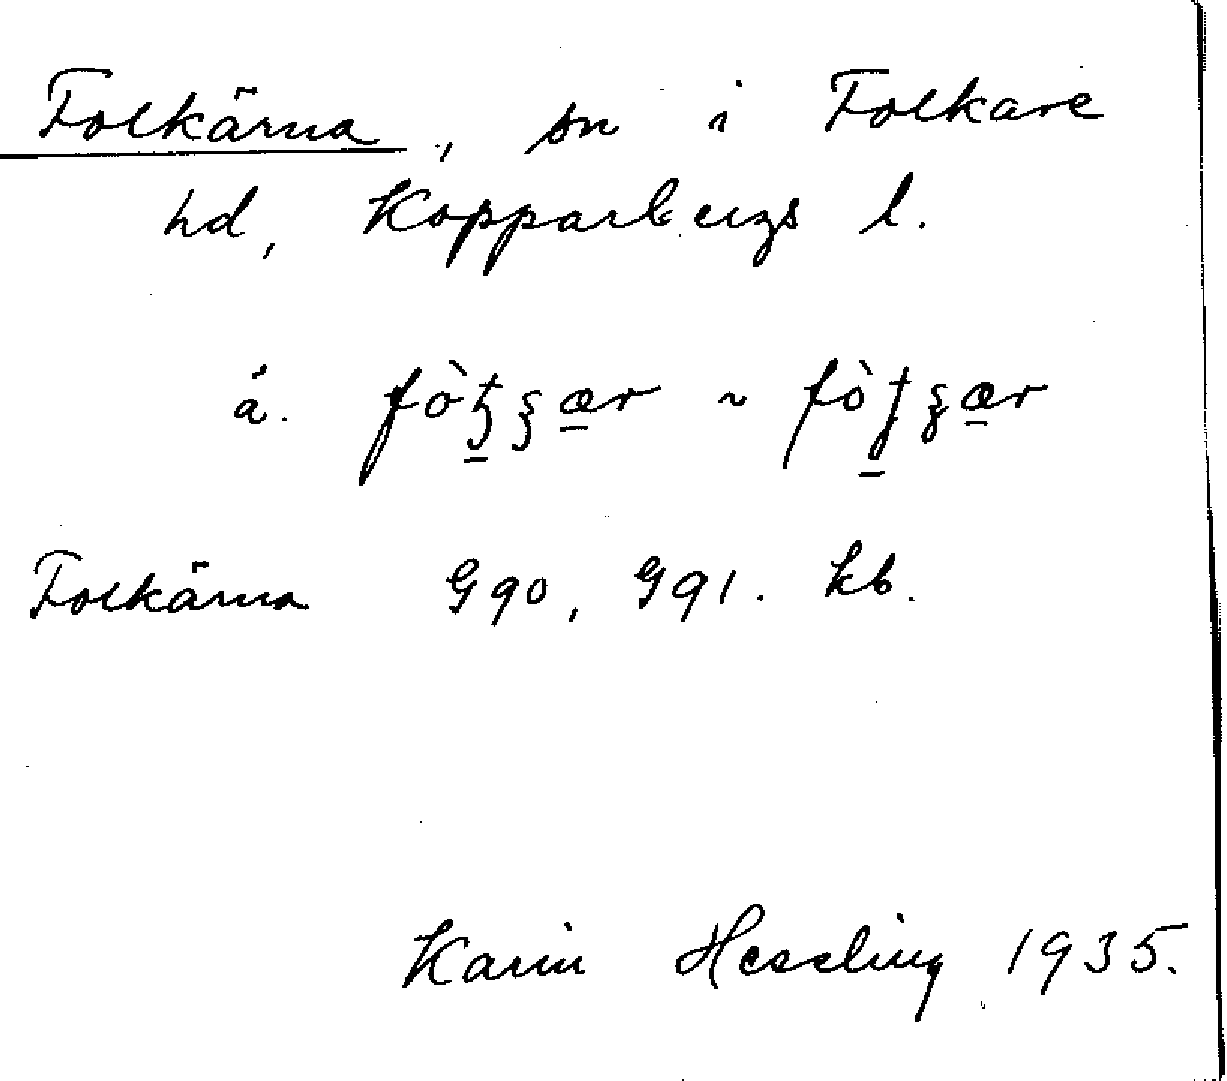 Folkärna, sn i Folkare
hd, Kopparbergs l.
á.
Folkärna G 90, G 91. kb.
Karin Hesseling 1935.